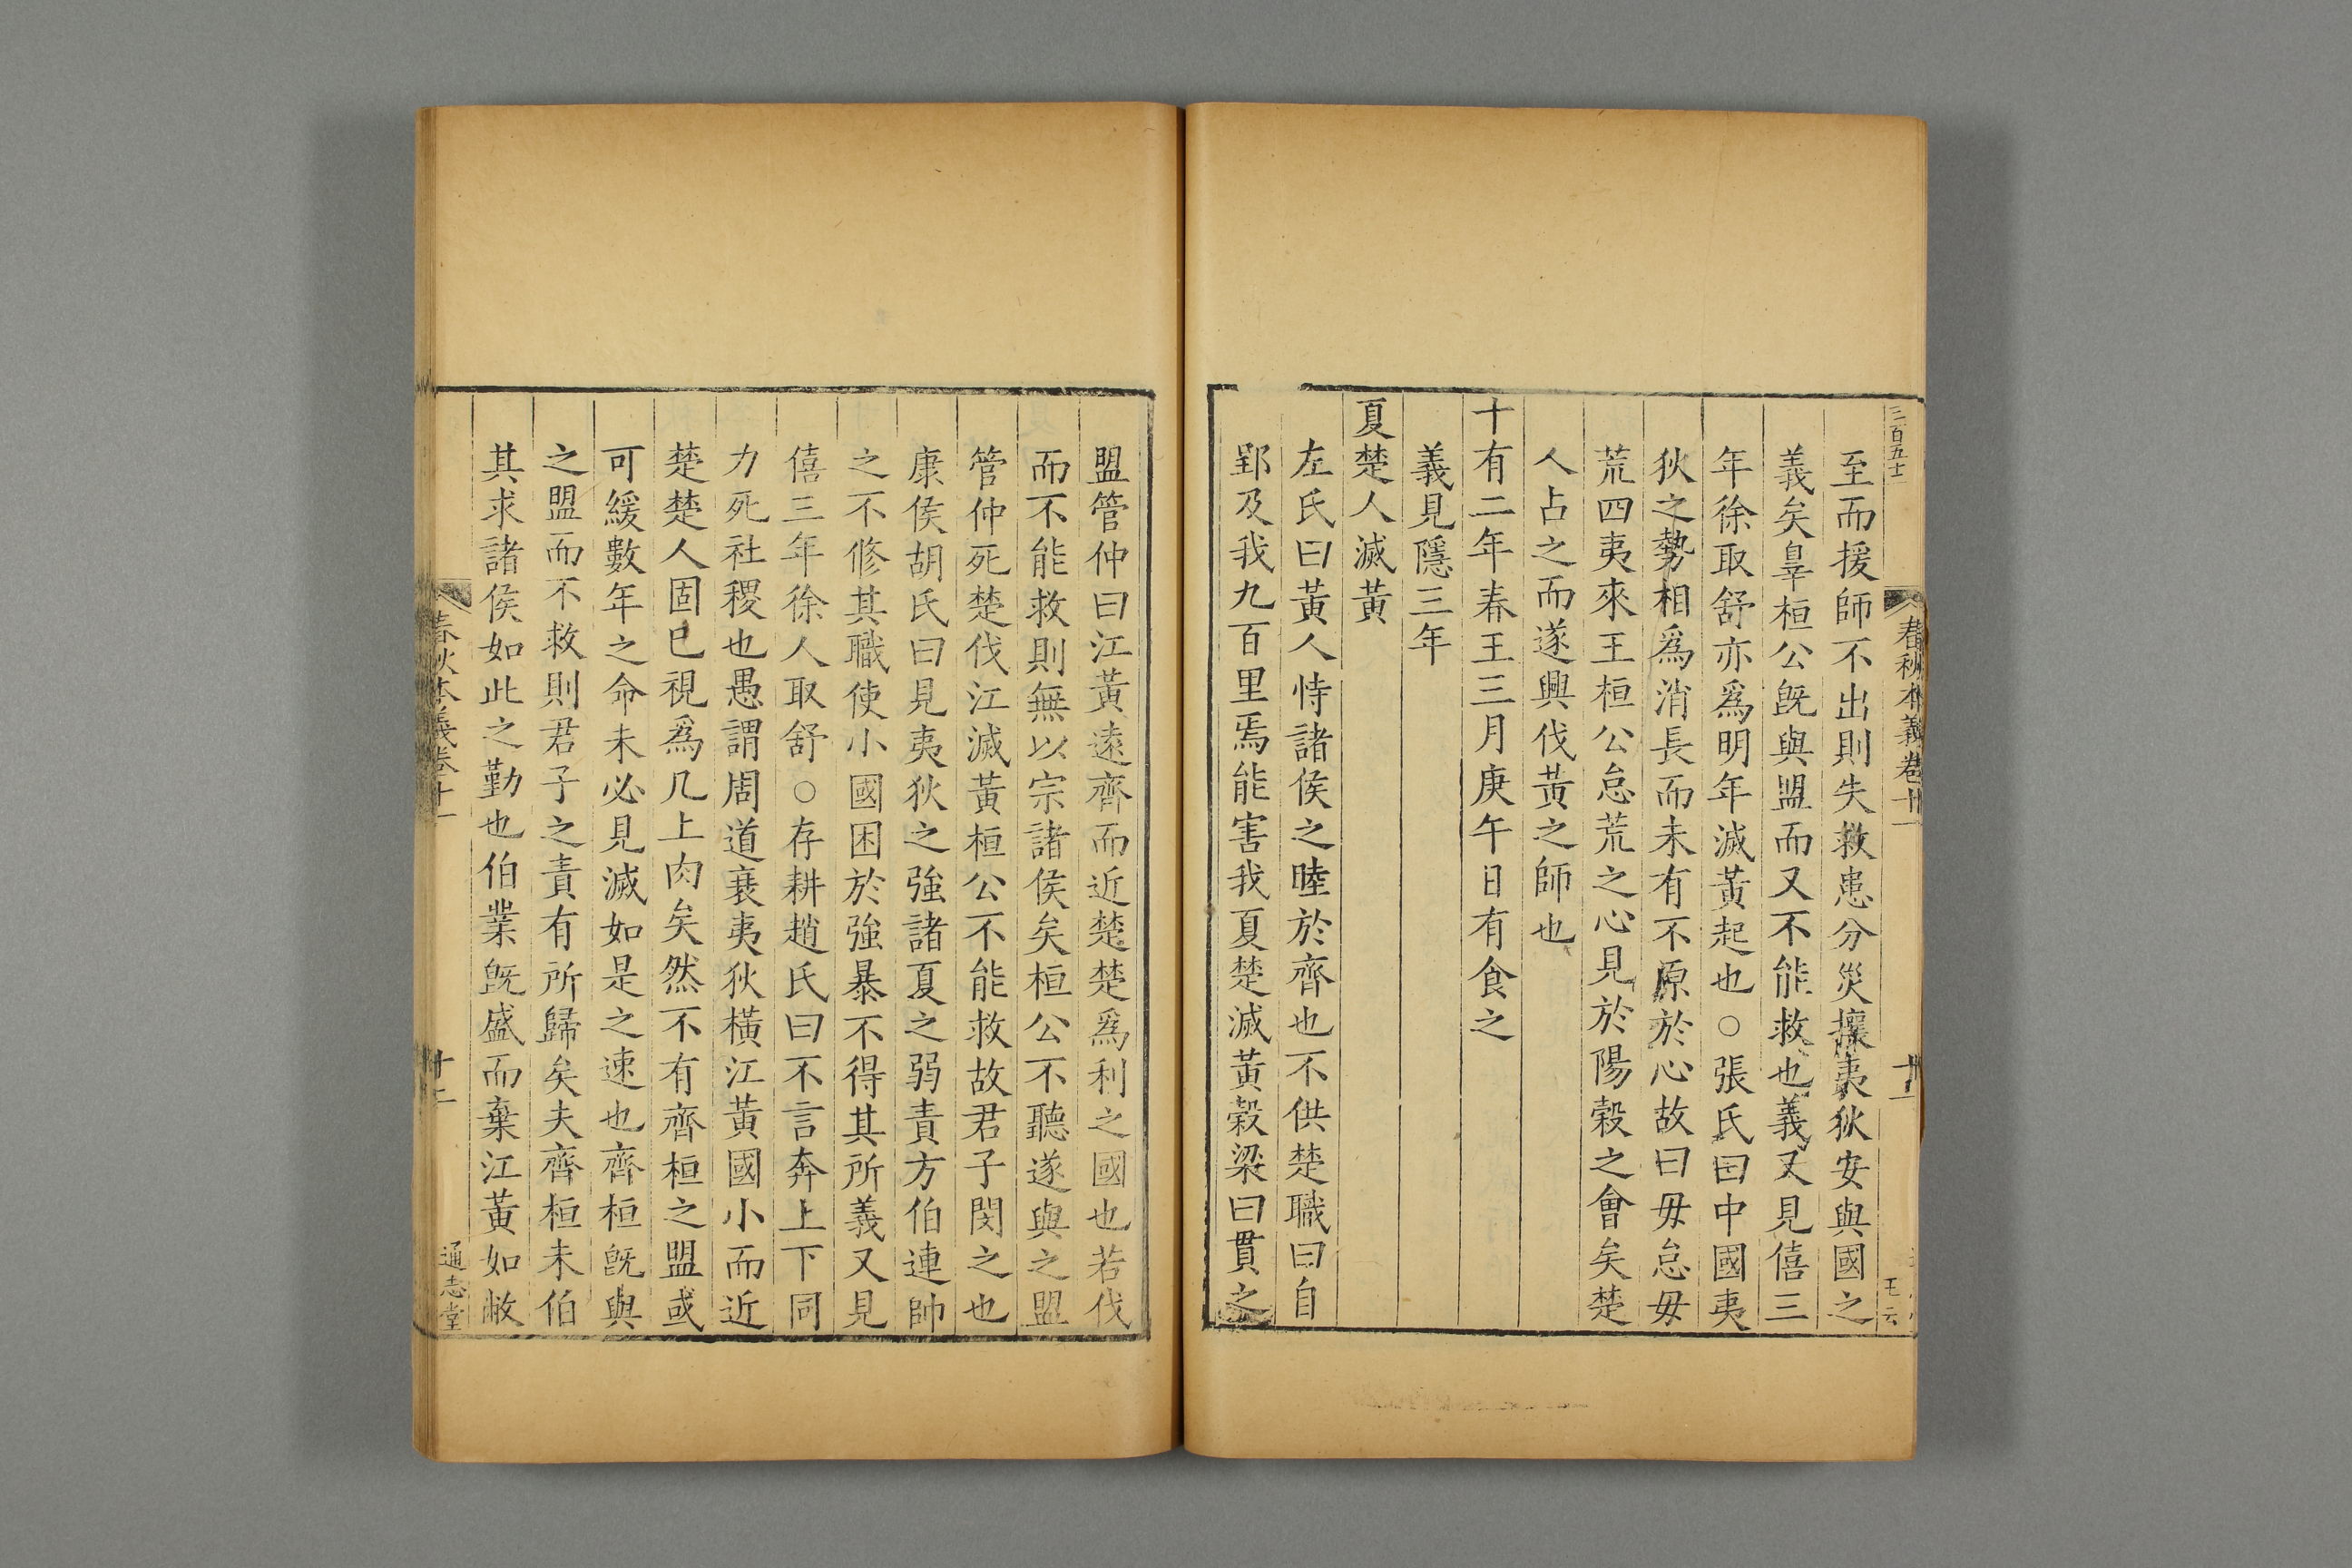 三百五十二
春秋本義卷十一
十一
王云
至而援師不出則失救患分災攘夷狄安與國之
義矣辠桓公旣與盟而又不能救也義又見僖三
年徐取舒亦爲明年滅黃起也○張氏曰中國夷
狄之勢相爲消長而未有不原於心故曰毋怠毋
荒四夷來王桓公怠荒之心見於陽穀之會矣楚
人占之而遂興伐黃之師也
十有二年春王三月庚午日有食之
義見隱三年
夏楚人滅黃
左氏曰黃人恃諸侯之睦於齊也不供楚職曰自
郢及我九百里焉能害我夏楚滅黃穀梁曰貫之
盟管仲曰江黃遠齊而近楚楚爲利之國也若伐
而不能救則無以宗諸侯矣桓公不聽遂與之盟
管仲死楚伐江滅黃桓公不能救故君子閔之也
康侯胡氏曰見夷狄之強諸夏之弱責方伯連帥
之不修其職使小國困於強暴不得其所義又見
僖三年徐人取舒○存耕趙氏曰不言奔上下同
力死社稷也愚謂周道衰夷狄橫江黃國小而近
楚楚人固已視爲几上肉矣然不有齊桓之盟或
可緩數年之命未必見滅如是之速也齊桓旣與
之盟而不救則君子之責有所歸矣夫齊桓未伯
其求諸侯如此之勤也伯業旣盛而棄江黃如敝
春秋本義卷十一
十二
通志堂